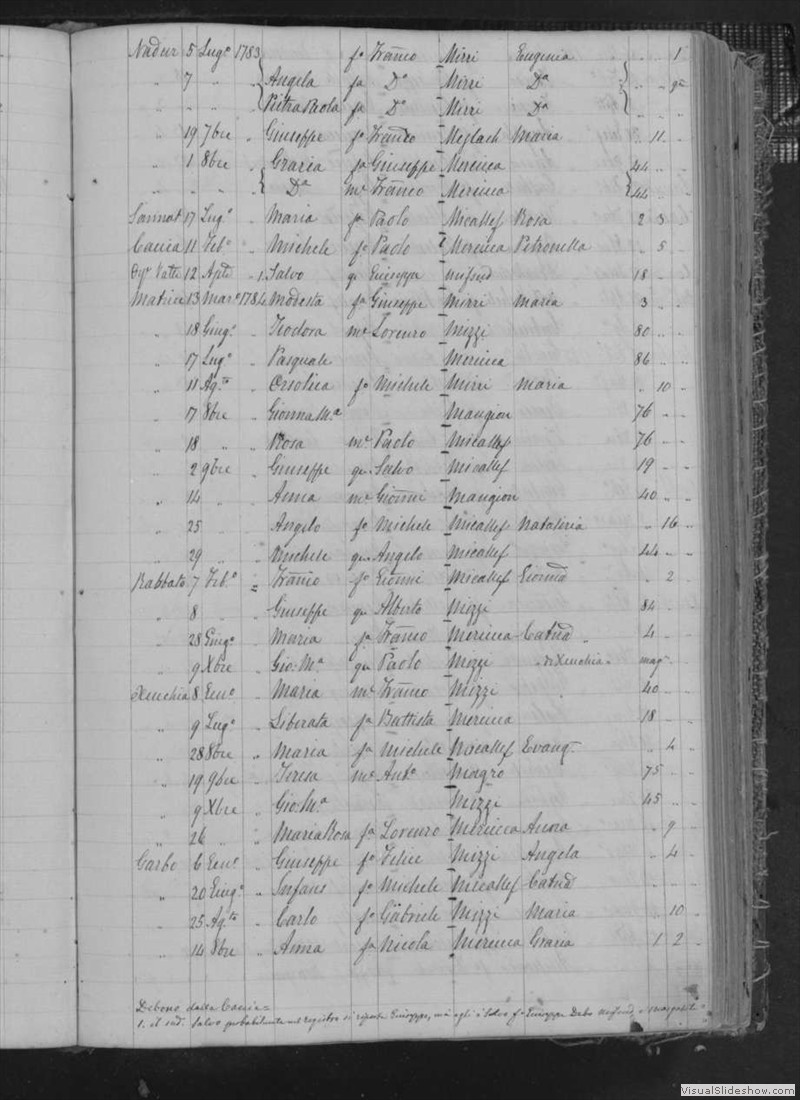 Nadur 5 Lugo 1783 fo Franco Mirri Eugenia " " 1
" 7 " " Angela fa Do Mirri Da " " ga
" " " " Pietra Paola fa Do Mirri Da " "
" 19 7bre " Giuseppe fo Franco Mejlach Maria " 11 "
" 1 8bre " Grazia fa Giuseppe Mercieca 44 " "
" " " " Da me Franco Mercieca 44 " "
Sannat 17 Lugo " Maria fa Paolo Micallef Rosa 2 3 "
Caccia 11 Febo " Michele fo Paolo Mercieca Petronella " 5 "
12 " 1. Salvo qu Giuseppe 18 "
Matrice 13 Marzo 1784 Modesta fa Giuseppe Mirri Maria 3 " "
" 18 Giugo " Teodora me Lorenzo Mizzi 80 " "
" 17 Lugo " Pasquale Mercieca 86 " "
" 11 Agto " Orsolica fa Michele Mirri Maria " 10 "
" 17 8bre " Gionna Ma Mangion 76 " "
" 18 " " Rosa me Paolo Micallef 76 " "
" 2 9bre " Giuseppe qu Salvo Micallef 19 " "
" 14 " Anna me Gionni Mangion 40 " "
" 25 Angelo fo Michele Micallef Natalizia " 16 "
" 29 " " Michele qu Angelo Micallef 44 " "
Rabbato 7 Febo " Franco fo Gionni Micallef Gionna " 2 "
" 8 " Giuseppe qu Alberto Mizzi 84 "
" 28 Giugo " Maria fa Franco Mercieca Catna " 4 "
" 9 Xbre " Gio: Ma qu Paolo Mizzi di Xeuchia mag
Xeuchia 8 Geno " Maria me Franco Mizzi 40 "
" 9 Lugo " Liberata fa Battista Mercieca 18 " "
" 28 8bre " Maria fa Michele Micallef Evang. " 4 "
" 19 9bre " Teresa me Anto Magro 75 " "
" 9 Xbre " Gio: Ma Mizzi 45 " "
" 26 " " Maria Rosa fa Lorenzo Mercieca Anna " 9 "
Garbo 6 Geno " Giuseppe fo Felice Mizzi Angela " 4 "
" 20 Giugo " Infans fo Michele Micallef Catna " " "
" 25 Agto " Carlo fo Gabriele Mizzi Maria " 10 "
" 14 8bre " Anna fa Nicola Mercieca Grazia 1 2 "
Debono dalla Caccia =
1. il sud. Salvo probabilmente nel registro si ripete Giuseppe, ma egli è Salvo fo Giuseppe
VisualSlideshow.com